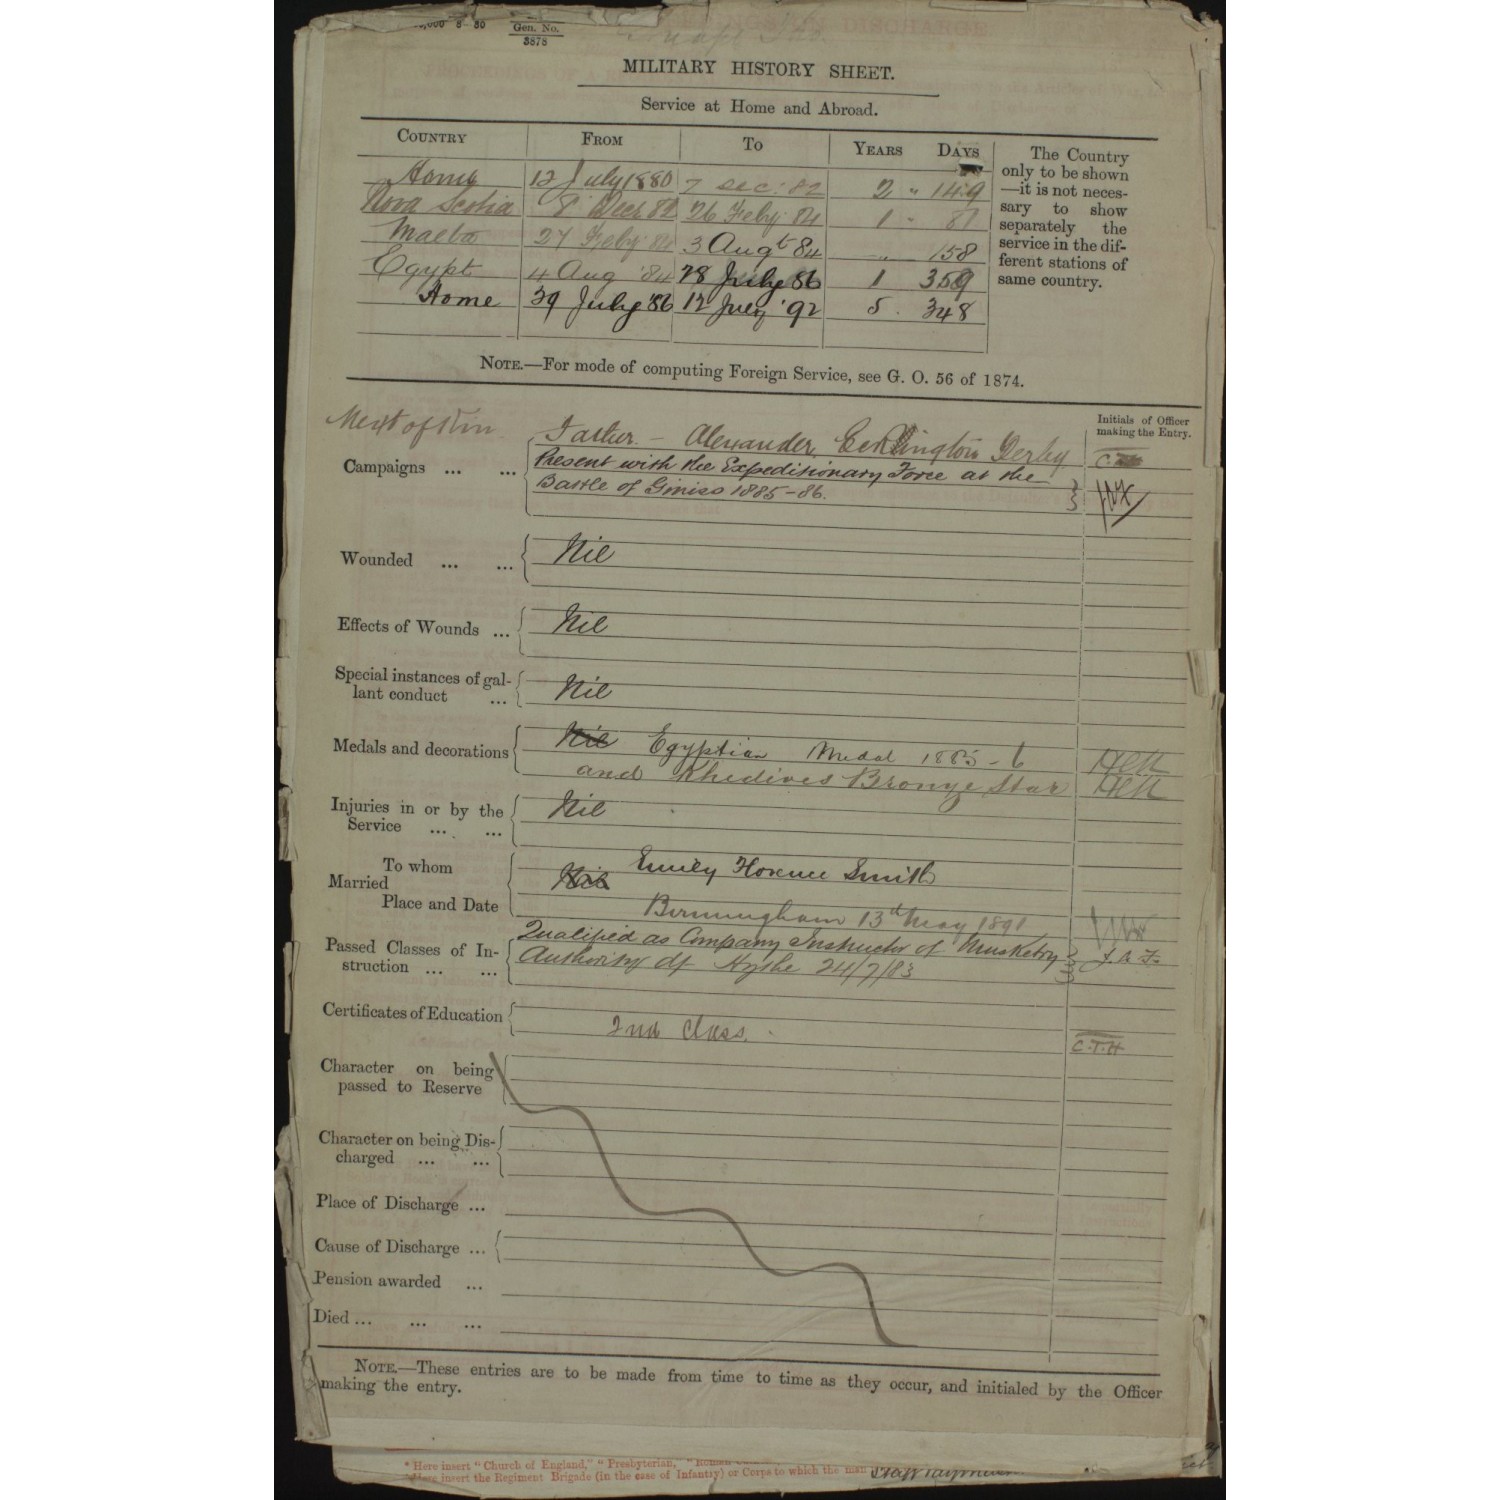 Gen. No.
3878
MILITARY HISTORY SHEET.
Service at Home and Abroad.
COUNTRY FROM TO YEARS DAYS
Home 12 July 1880 7 Dec: 82 2 " 149
Nova Scotia 8 Decr 82 26 Feby 84 1 " 81
Malta 27 Feby 84 3 Augt 84 " 158
Egypt 4 Aug '84 28 July 86 1 359
Home 29 July '86 12 July '92 5 . 348
The Country
only to be shown
—it is not neces-
sary to show
separately the
service in the dif-
ferent stations of
same country.
NOTE.—For mode of computing Foreign Service, see G. O. 56 of 1874.
Initials of Officer
making the Entry.
Next of Kin Father – Alexander, Derby
Campaigns ... ... Present with the Expeditionary Force at the
Battle of Giniss 1885-86.
Wounded ... ... Nil
Effects of Wounds ... Nil
Special instances of gal-
lant conduct ... Nil
Medals and decorations Nil Egyptian Medal 1885-6
and Khedives Bronze Star
Injuries in or by the
Service ... ... Nil
To whom
Married Nil Emily Florence Smith
Place and Date Birmingham 13th May 1891
Passed Classes of In-
struction ... ... Qualified as Company Instructor of Musketry
Authority df Hythe 24/7/83 J. A. F.
Certificates of Education 2nd Class. C.T.H
Character on being
passed to Reserve
Character on being Dis-
charged ... ...
Place of Discharge ...
Cause of Discharge ...
Pension awarded ...
Died ... ... ...
NOTE.—These entries are to be made from time to time as they occur, and initialed by the Officer
making the entry.
* Here insert "Church of England," "Presbyterian," "Roman
Here insert the Regiment Brigade (in the case of Infantry) or Corps to which the man